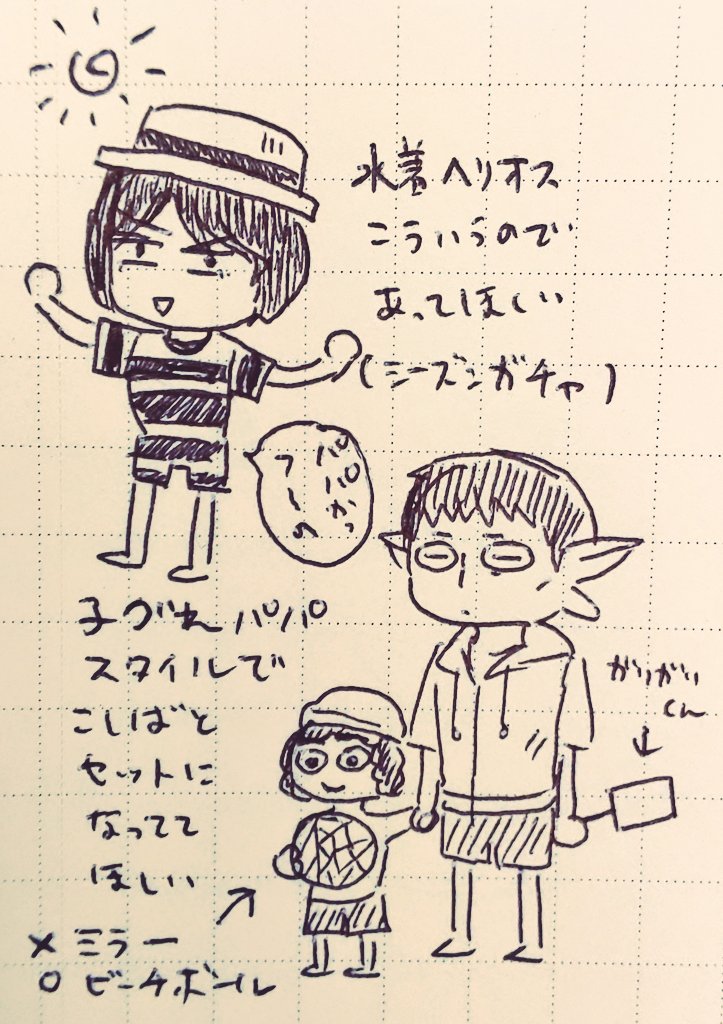 水着ヘリオス
こういうので
あってほしい
(シーズンガチャ)
パパかっ
子づれパパ
スタイルで
こしばと
セットに
なってて
ほしい
がりがり
くん
×ミラー
○ビーチボール